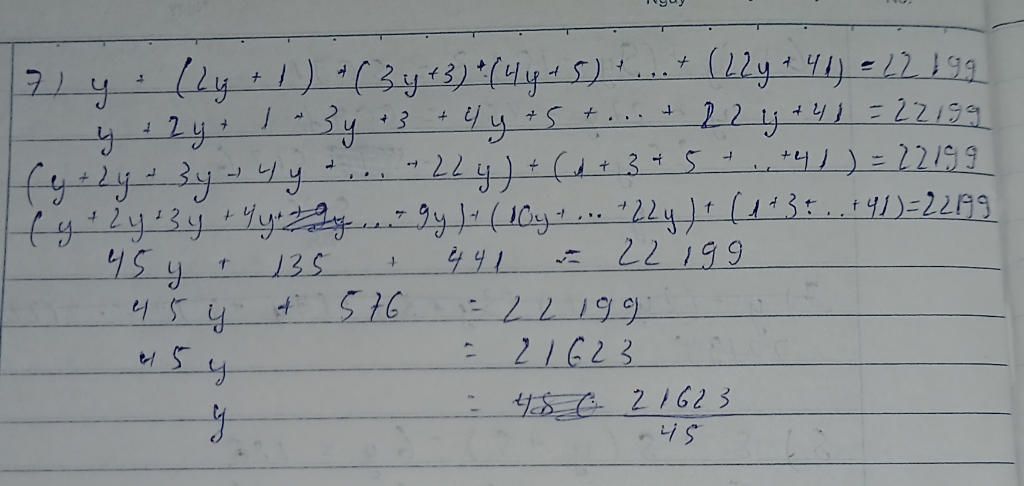 Ngày No.
7) y + (2y + 1) + (3y+3) + (4y+5) + ... + (22y+41) = 22199
y + 2y + 1 + 3y + 3 + 4y + 5 + ... + 22y + 41 = 22199
(y + 2y + 3y + 4y + ... + 22y) + (1 + 3 + 5 + ... + 41) = 22199
(y + 2y + 3y + 4y + ... + 9y) + (10y + ... + 22y) + (1 + 3 + ... + 41) = 22199
45y + 135 + 441 = 22199
45y + 576 = 22199
45y = 21623
y = 21623/45